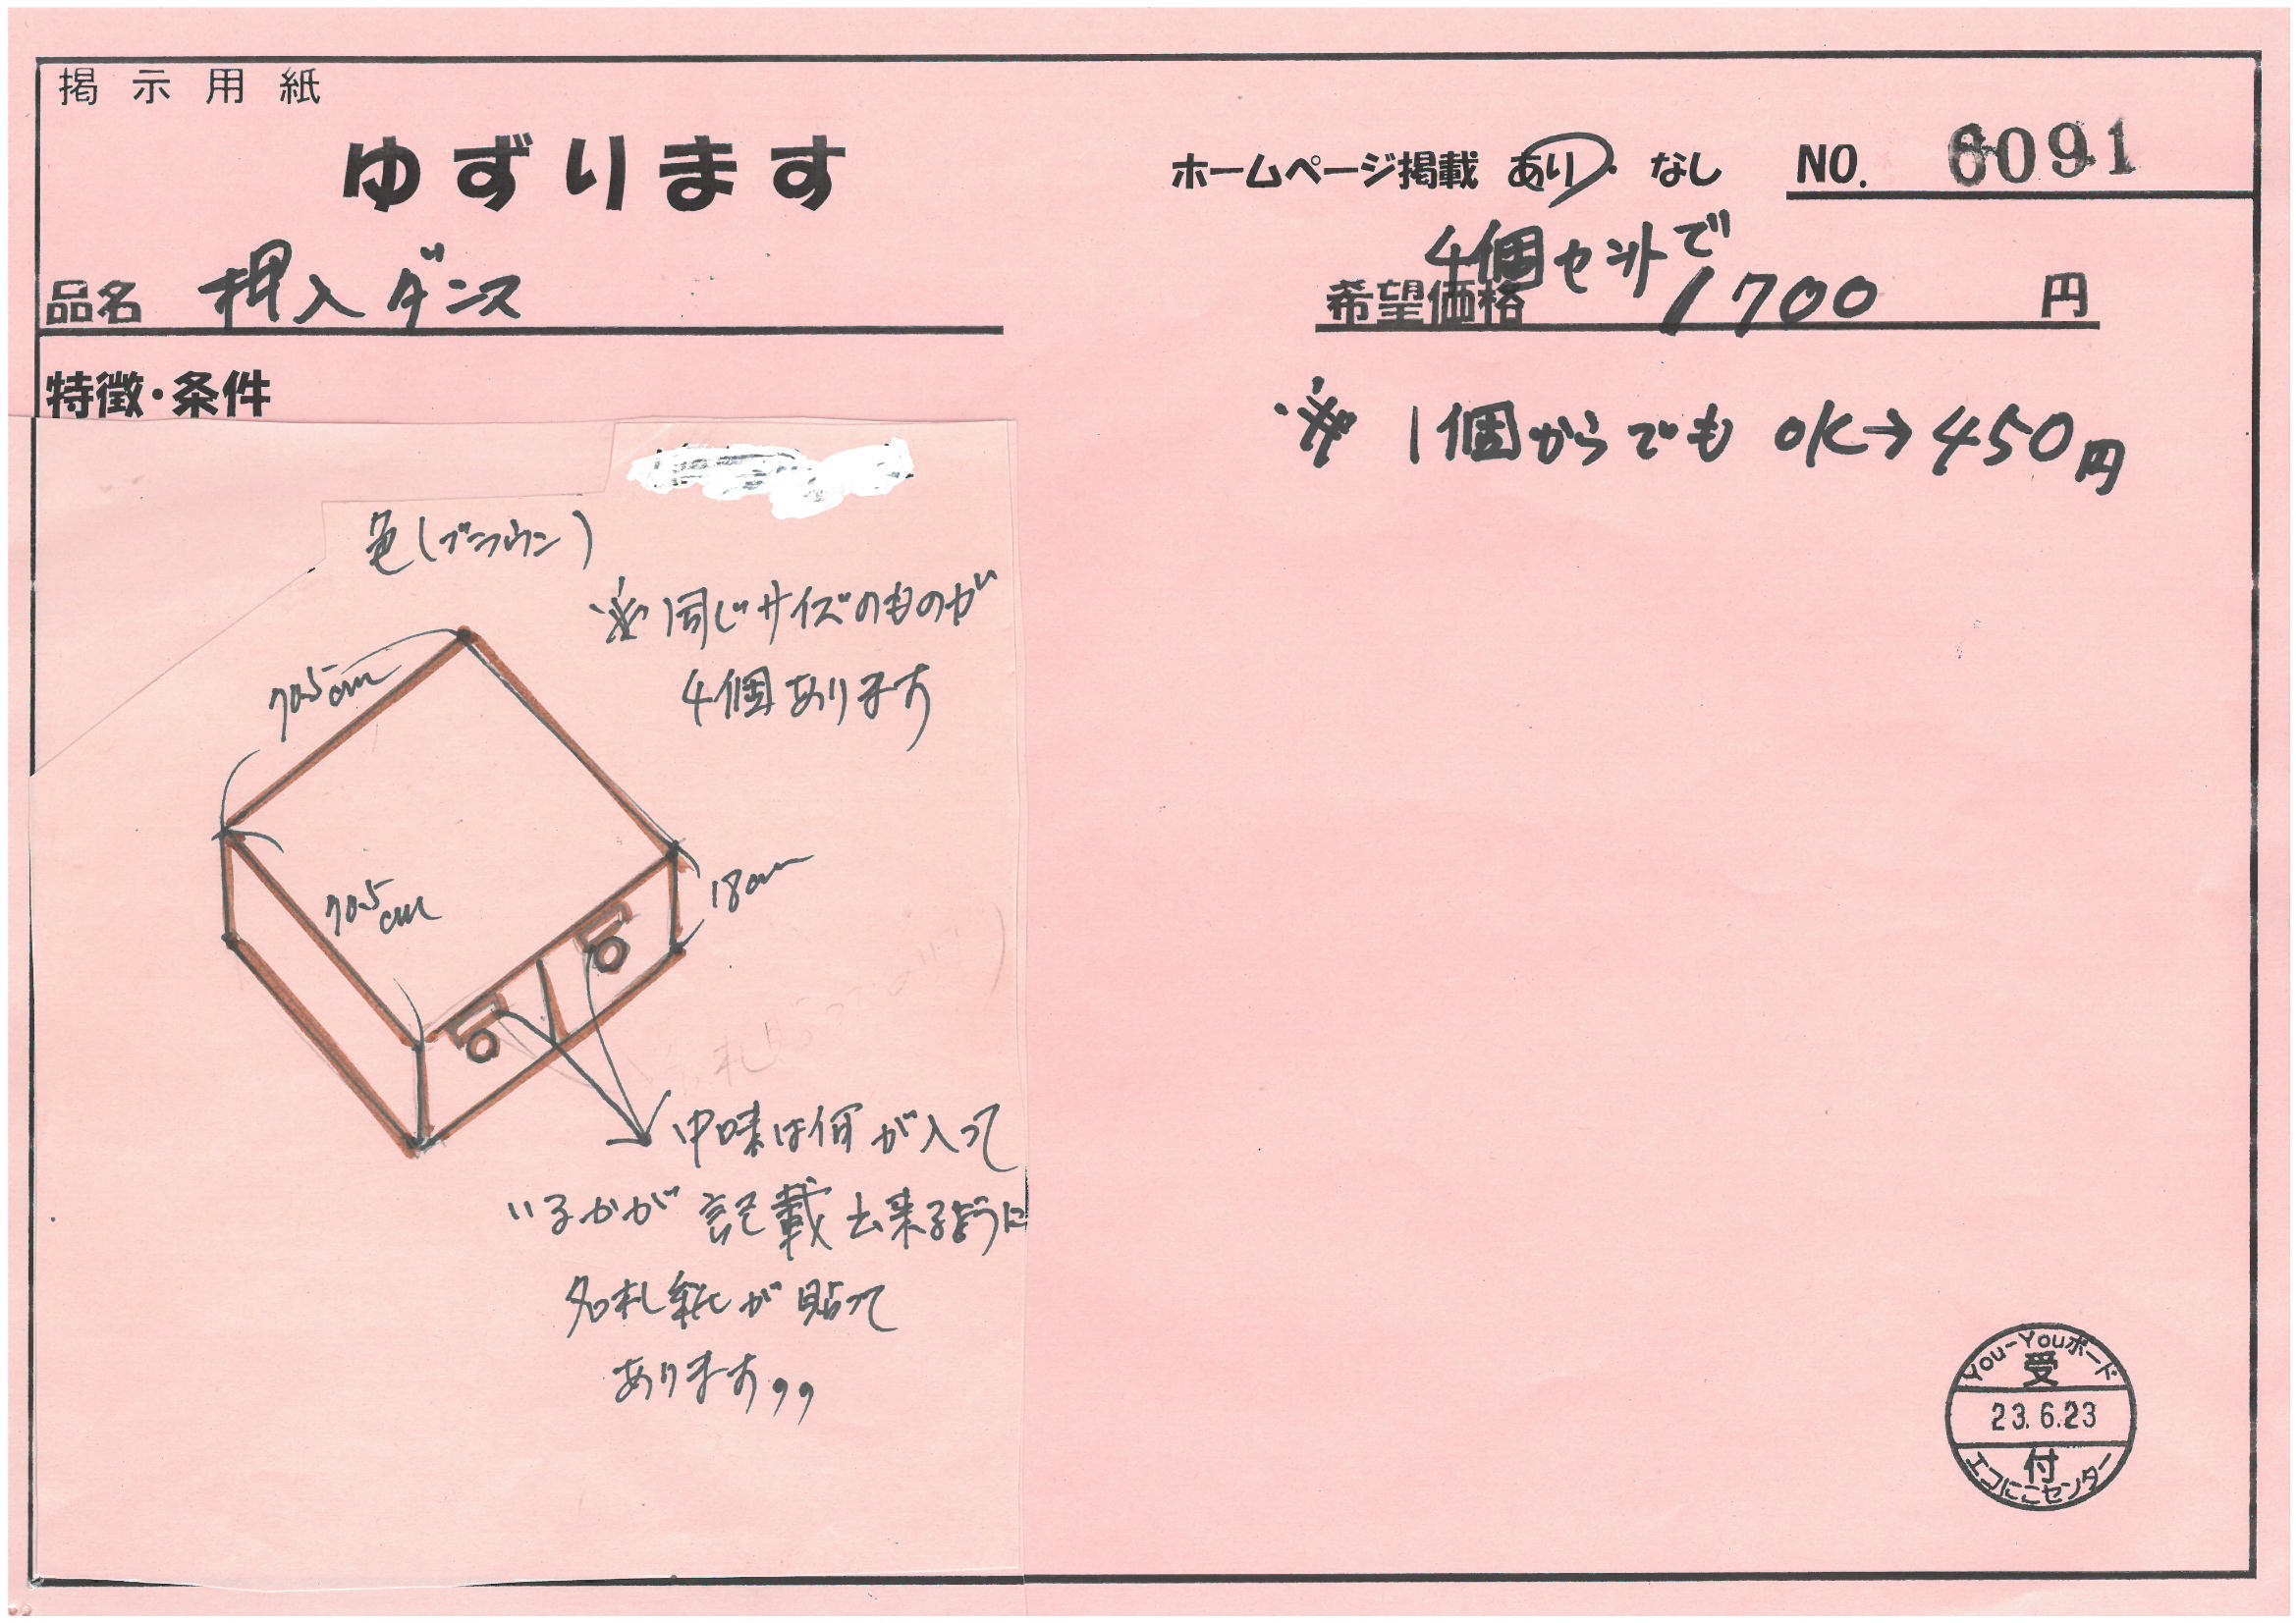 掲示用紙
ゆずります
ホームページ掲載 あり・なし NO. 6091
品名 押入ダンス
4個セットで
希望価格 1700 円
特徴・条件
※ 1個からでも OK→450円
色(ブラウン)
※同じサイズのものが
4個あります
70.5cm
70.5cm
18cm
中味は何が入って
いるかが記載出来るように
名札紙が貼って
あります,,
You-Youボード
受
23.6.23
付
エコにこセンター